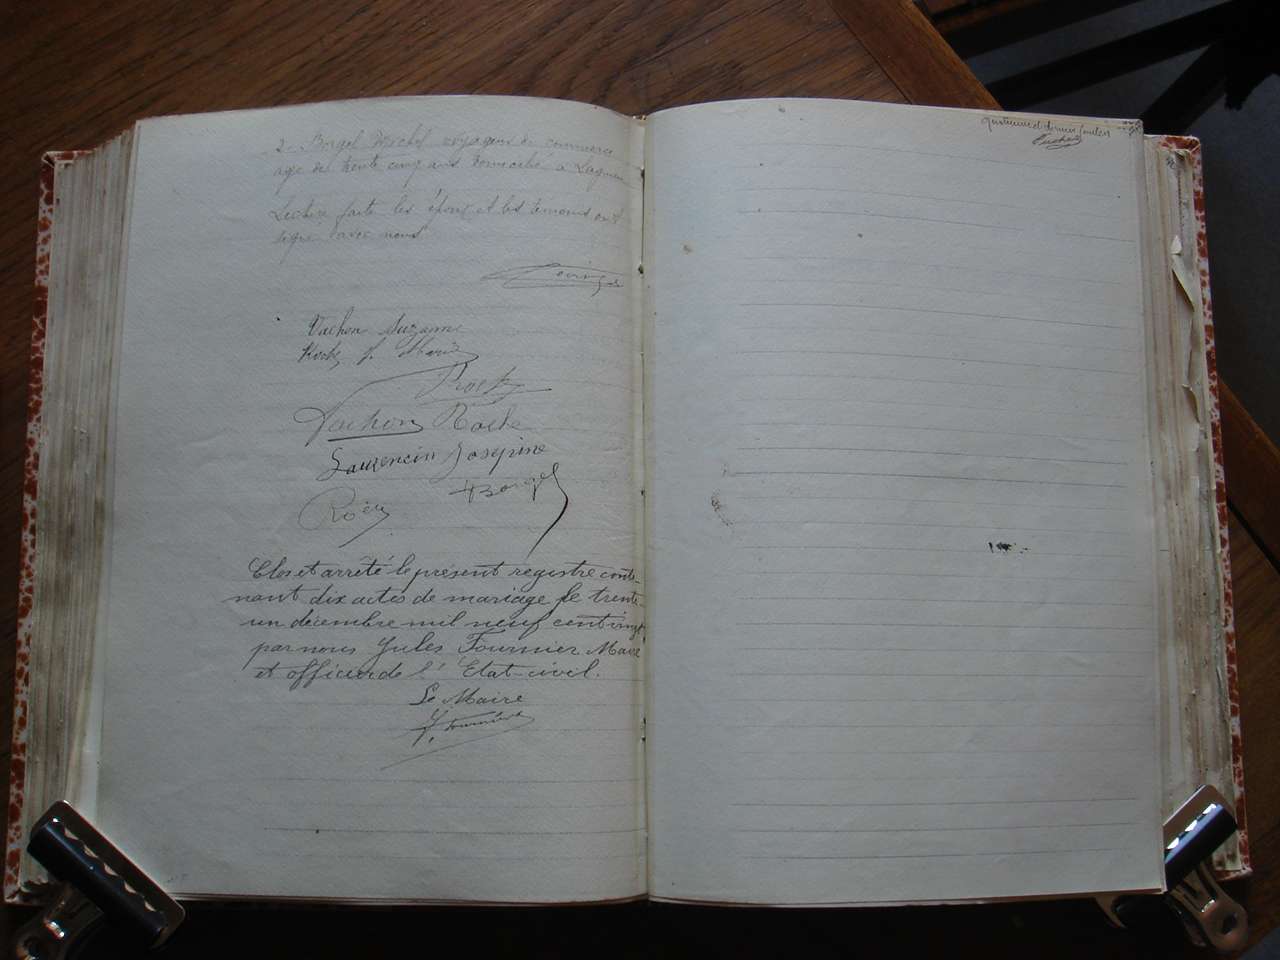 2. Borgel voyageur de commerce
age de trente cinq ans domicilié à Lagnieu
Lecture faite les époux et les temoins ont
signé avec nous
Vachon Suzanne
Roch J. Marie
Roch
Vachon Roche
Laurencin Joséphine
Borgel
Clos et arrêté le présent registre conte-
nant dix actes de mariage le trente-
un décembre mil neuf cent vingt
par nous Jules Fournier Maire
et officier de l'Etat-civil.
Le Maire
J. Fournier
quatrième et dernier feuillet